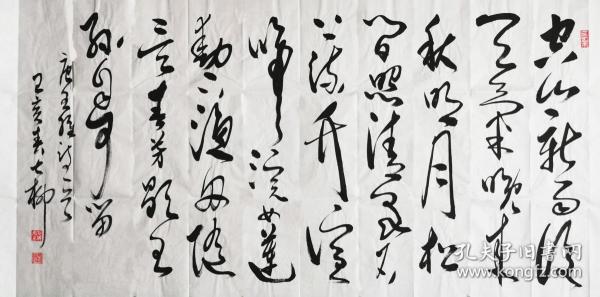 空山新雨後
天氣晚來
秋明月松
間照清泉石
上流竹喧
歸浣女蓮
動下漁舟隨
意春芳歇王
孫自可留
唐王維詩一首
己亥春柳
孔夫子旧书网
www.kongfz.com